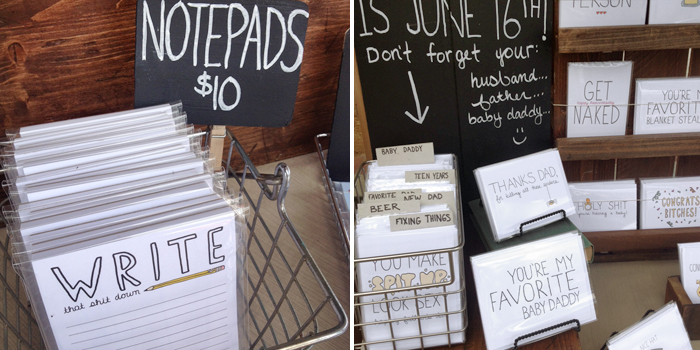 NOTEPADS
$10
WRITE
that shit down
IS JUNE 16TH!
Don't forget your:
husband...
father...
baby daddy...
BABY DADDY
TEEN YEARS
NEW DAD
BEER
FIXING THINGS
YOU MAKE
SPIT UP
LOOK SEXY
THANKS DAD,
for killing all those spiders
YOU'RE MY
FAVORITE
BABY DADDY
PERSON
GET
NAKED
YOU'RE MY
FAVORITE
BLANKET STEALER
HOLY SHIT
you're having a baby
CONGRATS
BITCHES!